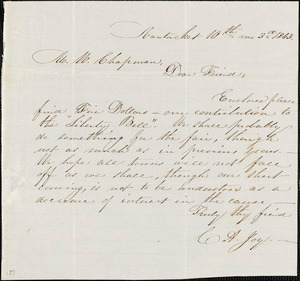 Nantucket 10th mo 3d 1843.
M. W. Chapman,
Dear Friend,
Enclosed please
find Five Dollars — my contribution to
the "Liberty Bell". We shall probably
do something for the fair, though
not as much as in previous years —
We hope all towns will not face
off as we shall, though our short
coming, is not to be understood as a
decrease of interest in the cause —
Truly thy friend
C A. Joy —